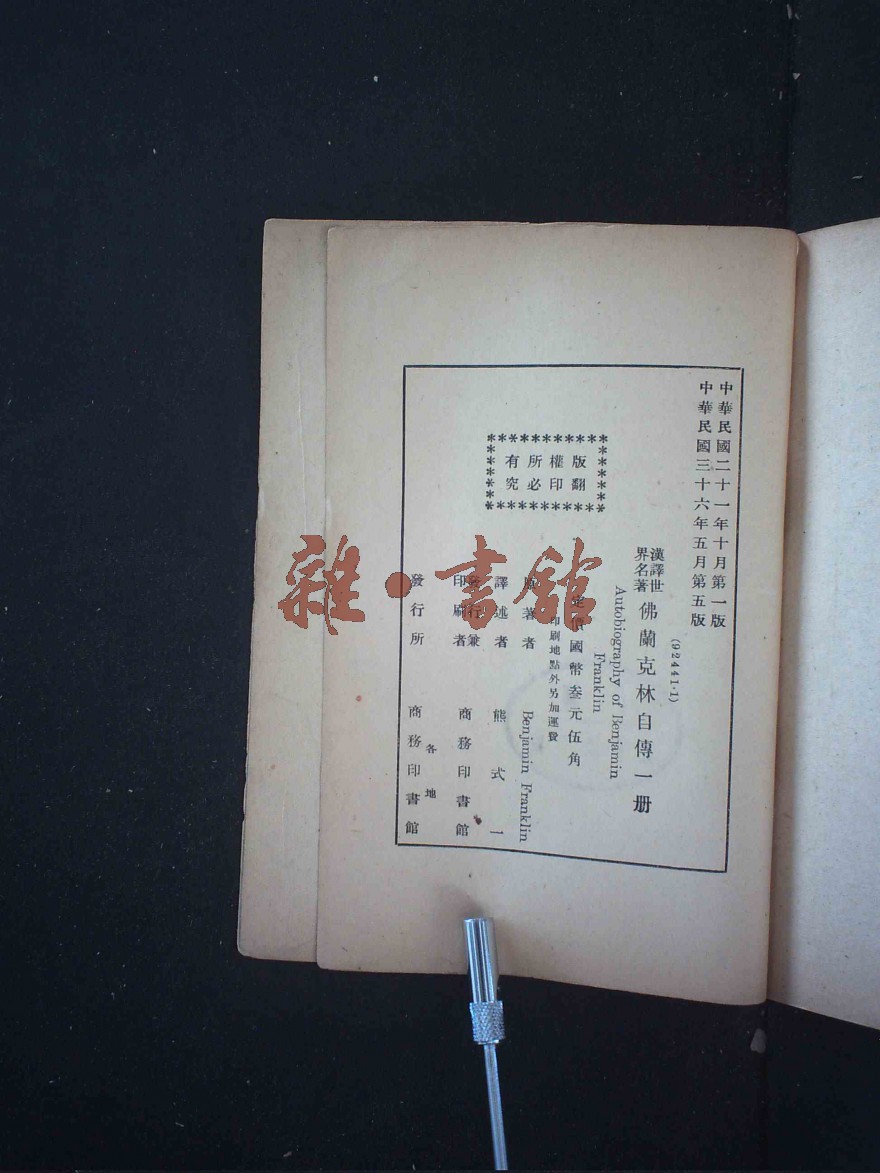 中華民國二十一年十月第一版
中華民國三十六年五月第五版
(92441·1)
漢譯世界名著 佛蘭克林自傳一册
Autobiography of Benjamin
Franklin
定價國幣叁元伍角
印刷地點外另加運費
原著者 Benjamin Franklin
譯述者 熊式一
發行兼印刷者 商務印書館
發行所 各地 商務印書館
版權所有
翻印必究
雜·書館